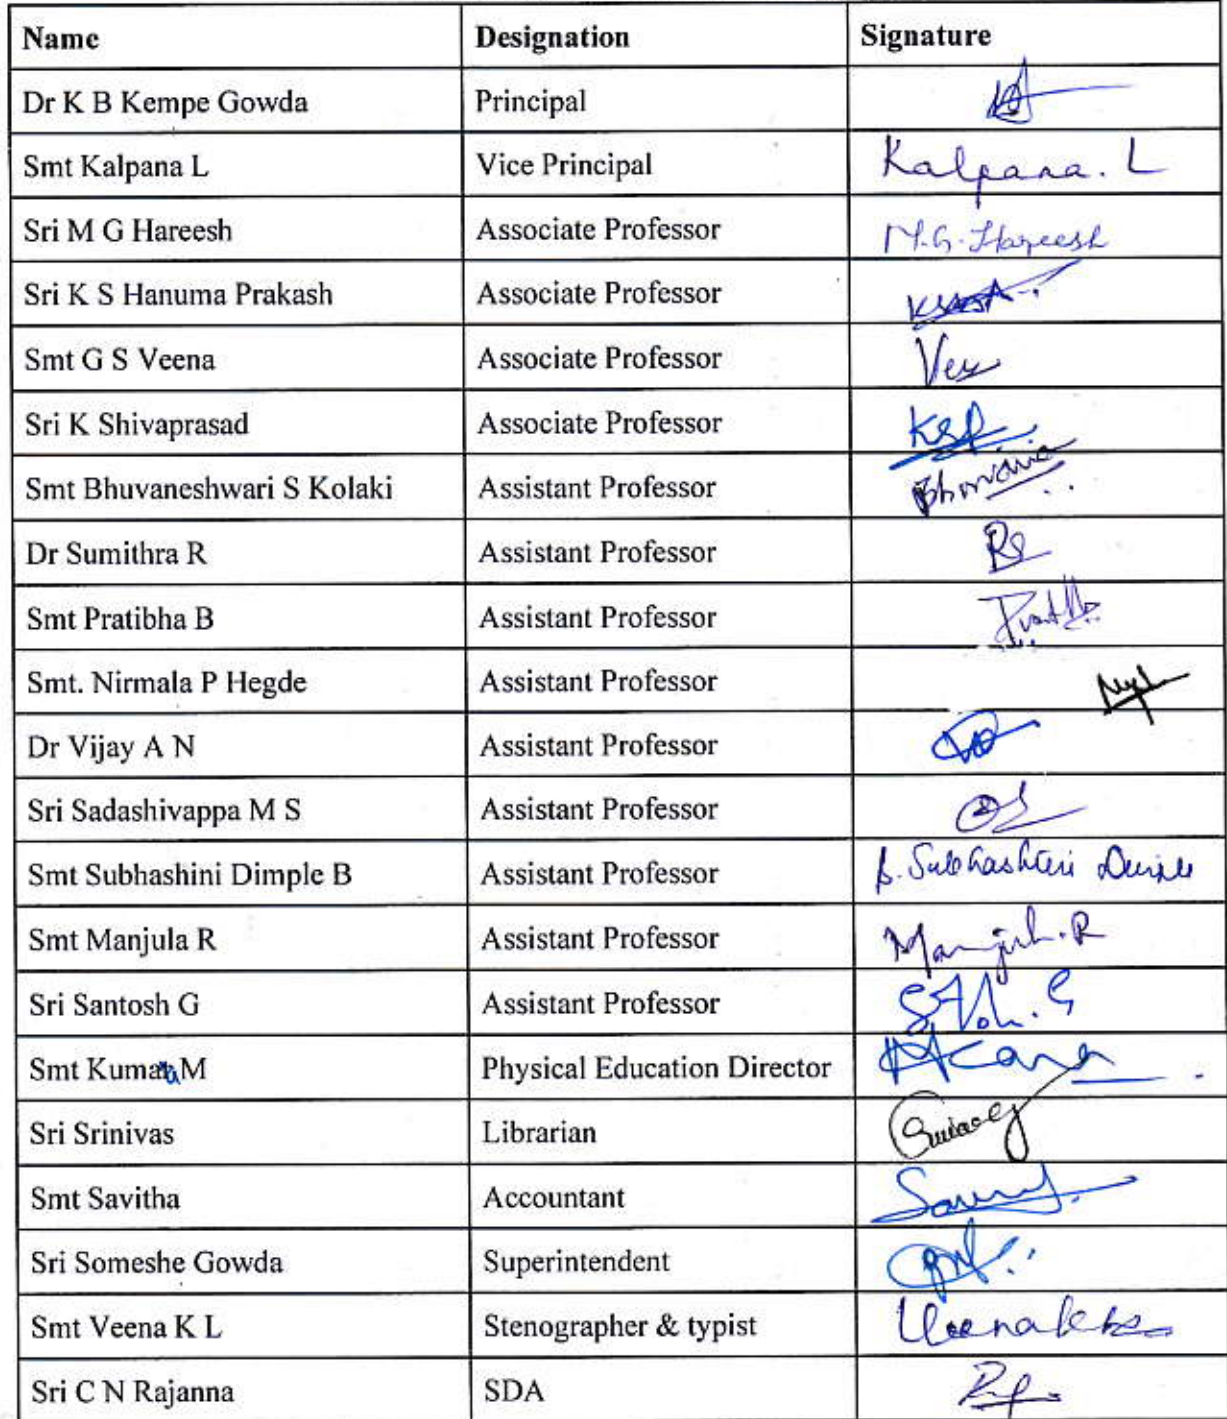 Name Designation Signature
Dr K B Kempe Gowda Principal
Smt Kalpana L Vice Principal Kalpana. L
Sri M G Hareesh Associate Professor M.G. Hareesh
Sri K S Hanuma Prakash Associate Professor
Smt G S Veena Associate Professor
Sri K Shivaprasad Associate Professor KSP
Smt Bhuvaneshwari S Kolaki Assistant Professor
Dr Sumithra R Assistant Professor
Smt Pratibha B Assistant Professor
Smt. Nirmala P Hegde Assistant Professor
Dr Vijay A N Assistant Professor
Sri Sadashivappa M S Assistant Professor
Smt Subhashini Dimple B Assistant Professor B. Subhashini Dimple
Smt Manjula R Assistant Professor
Sri Santosh G Assistant Professor
Smt M Physical Education Director
Sri Srinivas Librarian
Smt Savitha Accountant
Sri Someshe Gowda Superintendent
Smt Veena K L Stenographer & typist
Sri C N Rajanna SDA